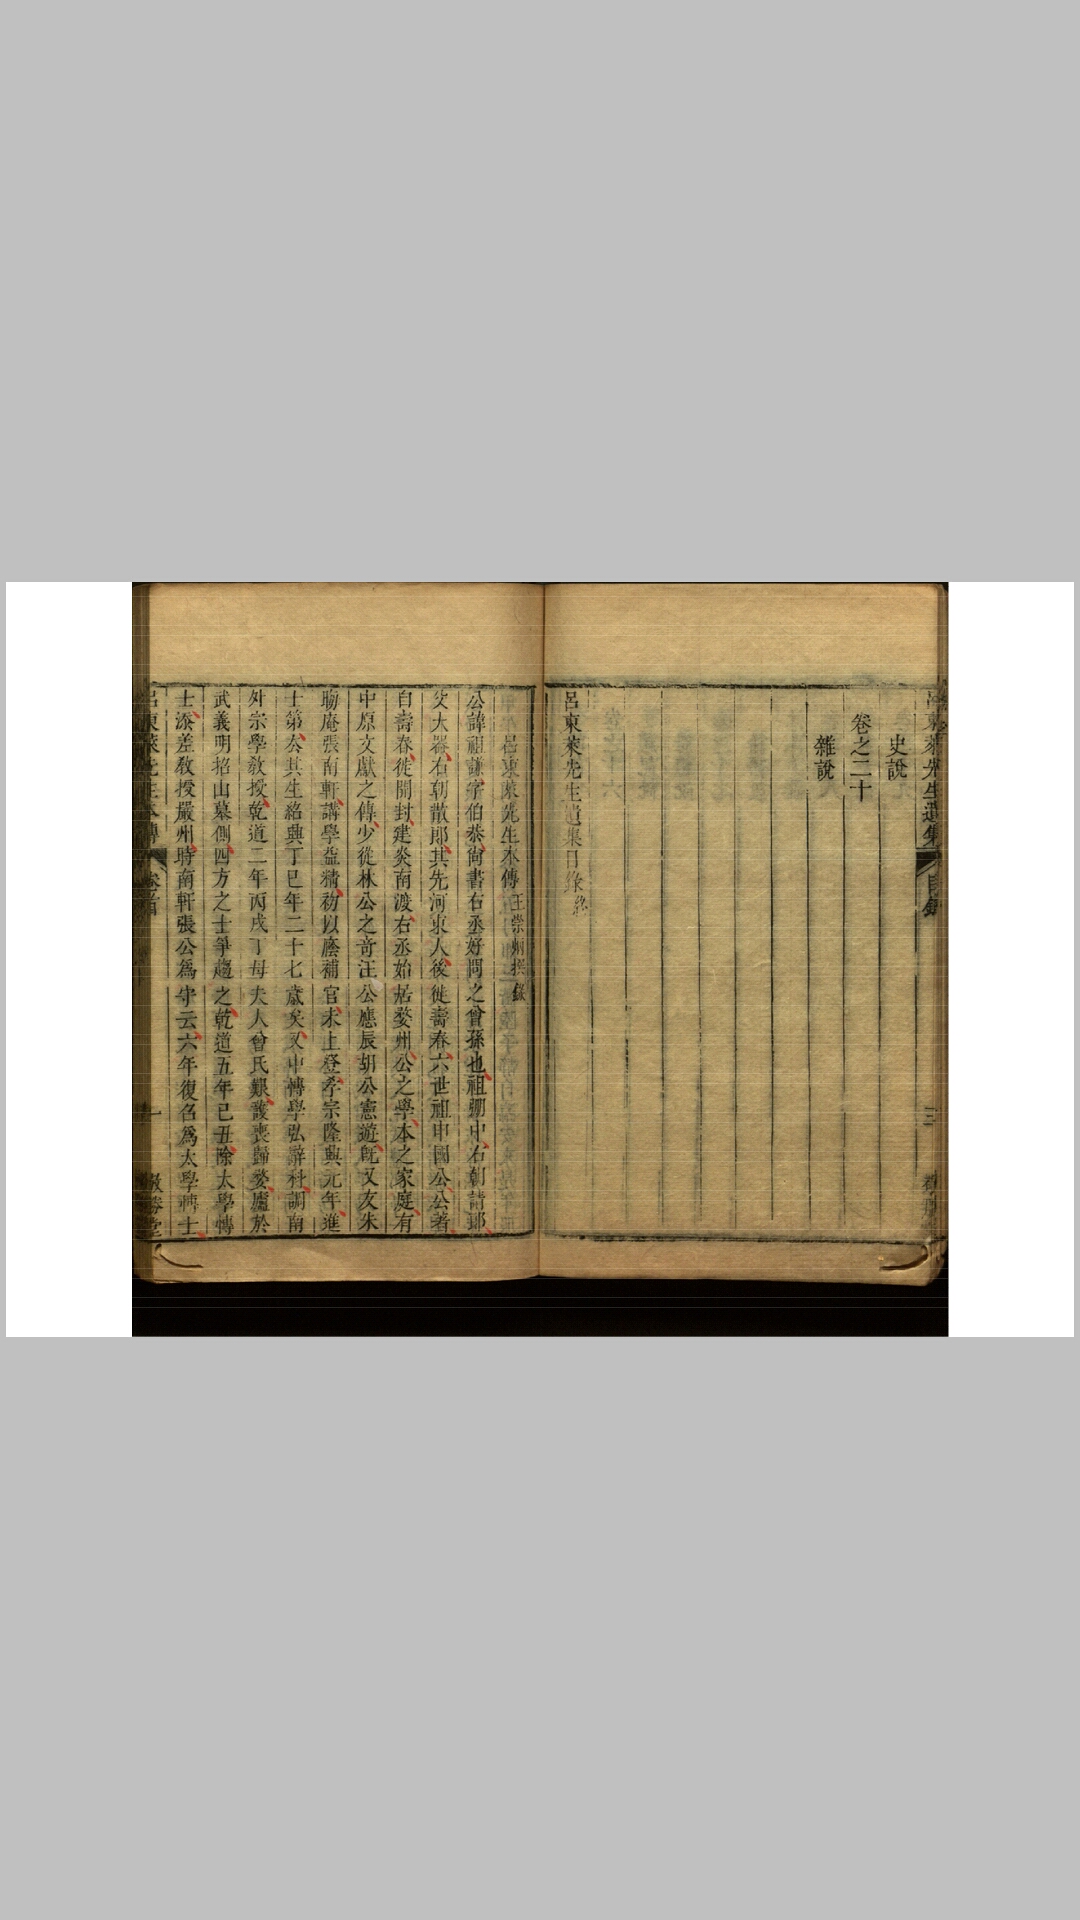 呂東萊先生遺集
目錄
三
史說
卷之二十
雜說
呂東萊先生遺集目錄終
呂東萊先生本傳 王崇炳撰錄
公諱祖謙字伯恭尚書右丞好問之曾孫也祖弸中右朝請郎
父大器右朝散郎其先河東人後徙壽春六世祖申國公公著
自壽春徙開封建炎南渡右丞始居婺州公之學本之家庭有
中原文獻之傳少從林公之奇汪公應辰胡公憲遊旣又友朱
晦庵張南軒講學益精初以廕補官未上登孝宗隆興元年進
士第公其生紹興丁巳年二十七歲矣又中博學弘辭科調南
外宗學敎授乾道二年丙戌丁母夫人曾氏艱護喪歸婺廬於
武義明招山墓側四方之士爭趨之乾道五年己丑除太學博
士添差敎授嚴州時南軒張公爲守云六年復召爲太學博士
呂東萊先生本傳
卷首
一
敬勝堂